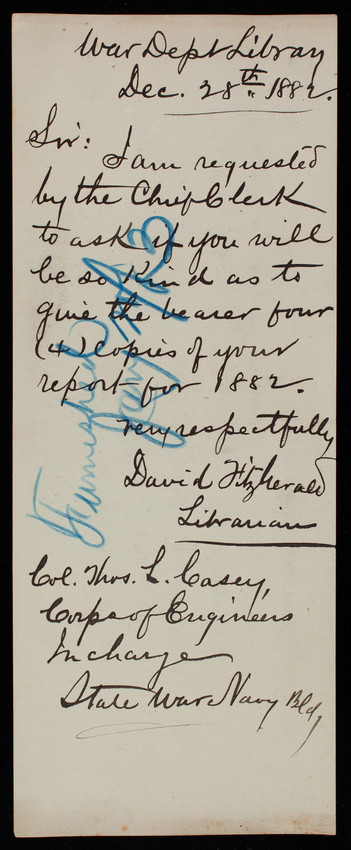 War Dept Library
Dec. 28th 1882.
Sir:
I am requested
by the Chief Clerk
to ask if you will
be so kind as to
give the bearer four
(4) copies of your
report for 1882.
very respectfully
David Fitzgerald
Librarian
Col. Thos. L. Casey,
Corps of Engineers
In charge
State War Navy Bld,
Furnished
Jany